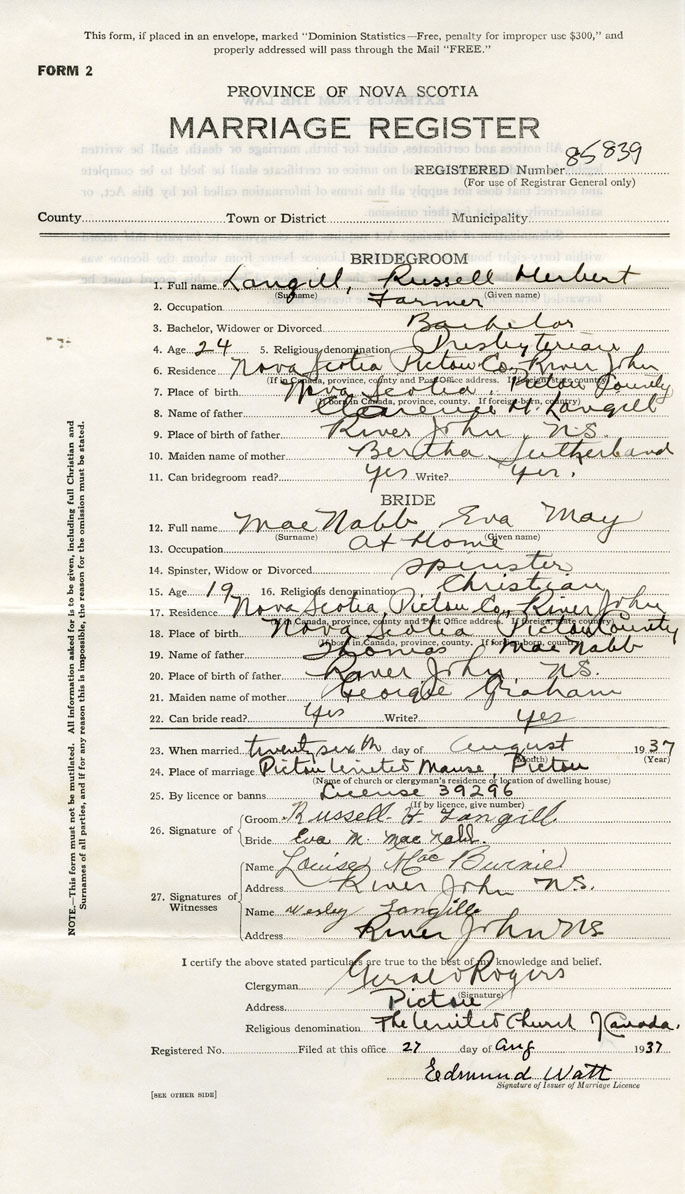 This form, if placed in an envelope, marked "Dominion Statistics—Free, penalty for improper use $300," and
properly addressed will pass through the Mail "FREE."
FORM 2
PROVINCE OF NOVA SCOTIA
MARRIAGE REGISTER
REGISTERED Number 85839
(For use of Registrar General only)
County Town or District Municipality
BRIDEGROOM
1. Full name Langill, Russell Herbert
(Surname) (Given name)
2. Occupation Farmer
3. Bachelor, Widower or Divorced Bachelor
4. Age 24 5. Religious denomination Presbyterian
6. Residence Nova Scotia Pictou Co, River John
(If in Canada, province, county and Post Office address. If foreign state country)
7. Place of birth Nova Scotia, Pictou County
(If born in Canada, province, county. If foreign-born, country)
8. Name of father Clearence H. Langill
9. Place of birth of father River John, N.S.
10. Maiden name of mother Bertha Sutherland
11. Can bridegroom read? yes Write? yes.
BRIDE
12. Full name Mac Nabb Eva May
(Surname) (Given name)
13. Occupation at Home
14. Spinster, Widow or Divorced Spinster
15. Age 19 16. Religious denomination Christian
17. Residence Nova Scotia, Pictou Co, River John
(If in Canada, province, county and Post Office address. If foreign, state country)
18. Place of birth Nova Scotia Pictou County
(If born in Canada, province, county. If foreign-born, country)
19. Name of father Thomas MacNabb
20. Place of birth of father River John N.S.
21. Maiden name of mother Georgie Graham
22. Can bride read? Yes Write? yes
23. When married twenty sixth day of August 1937
(Month) (Year)
24. Place of marriage Pictou United Manse, Pictou
(Name of church or clergyman's residence or location of dwelling house)
25. By licence or banns License 39296
(If by licence, give number)
26. Signature of
Groom Russell H Langill
Bride Eva M. Mac Nabb.
27. Signatures of Witnesses
Name Louise Mac Burnie
Address River John N.S.
Name Wesley Langille
Address River John NS
I certify the above stated particulars are true to the best of my knowledge and belief.
Clergyman Gerald Rogers
(Signature)
Address Pictou
Religious denomination The United Church of Canada.
Registered No. Filed at this office 27 day of Aug 1937
Edmund Watt
Signature of Issuer of Marriage Licence
[SEE OTHER SIDE]
NOTE.—This form must not be mutilated. All information asked for is to be given, including full Christian and
Surnames of all parties, and if for any reason this is impossible, the reason for the omission must be stated.